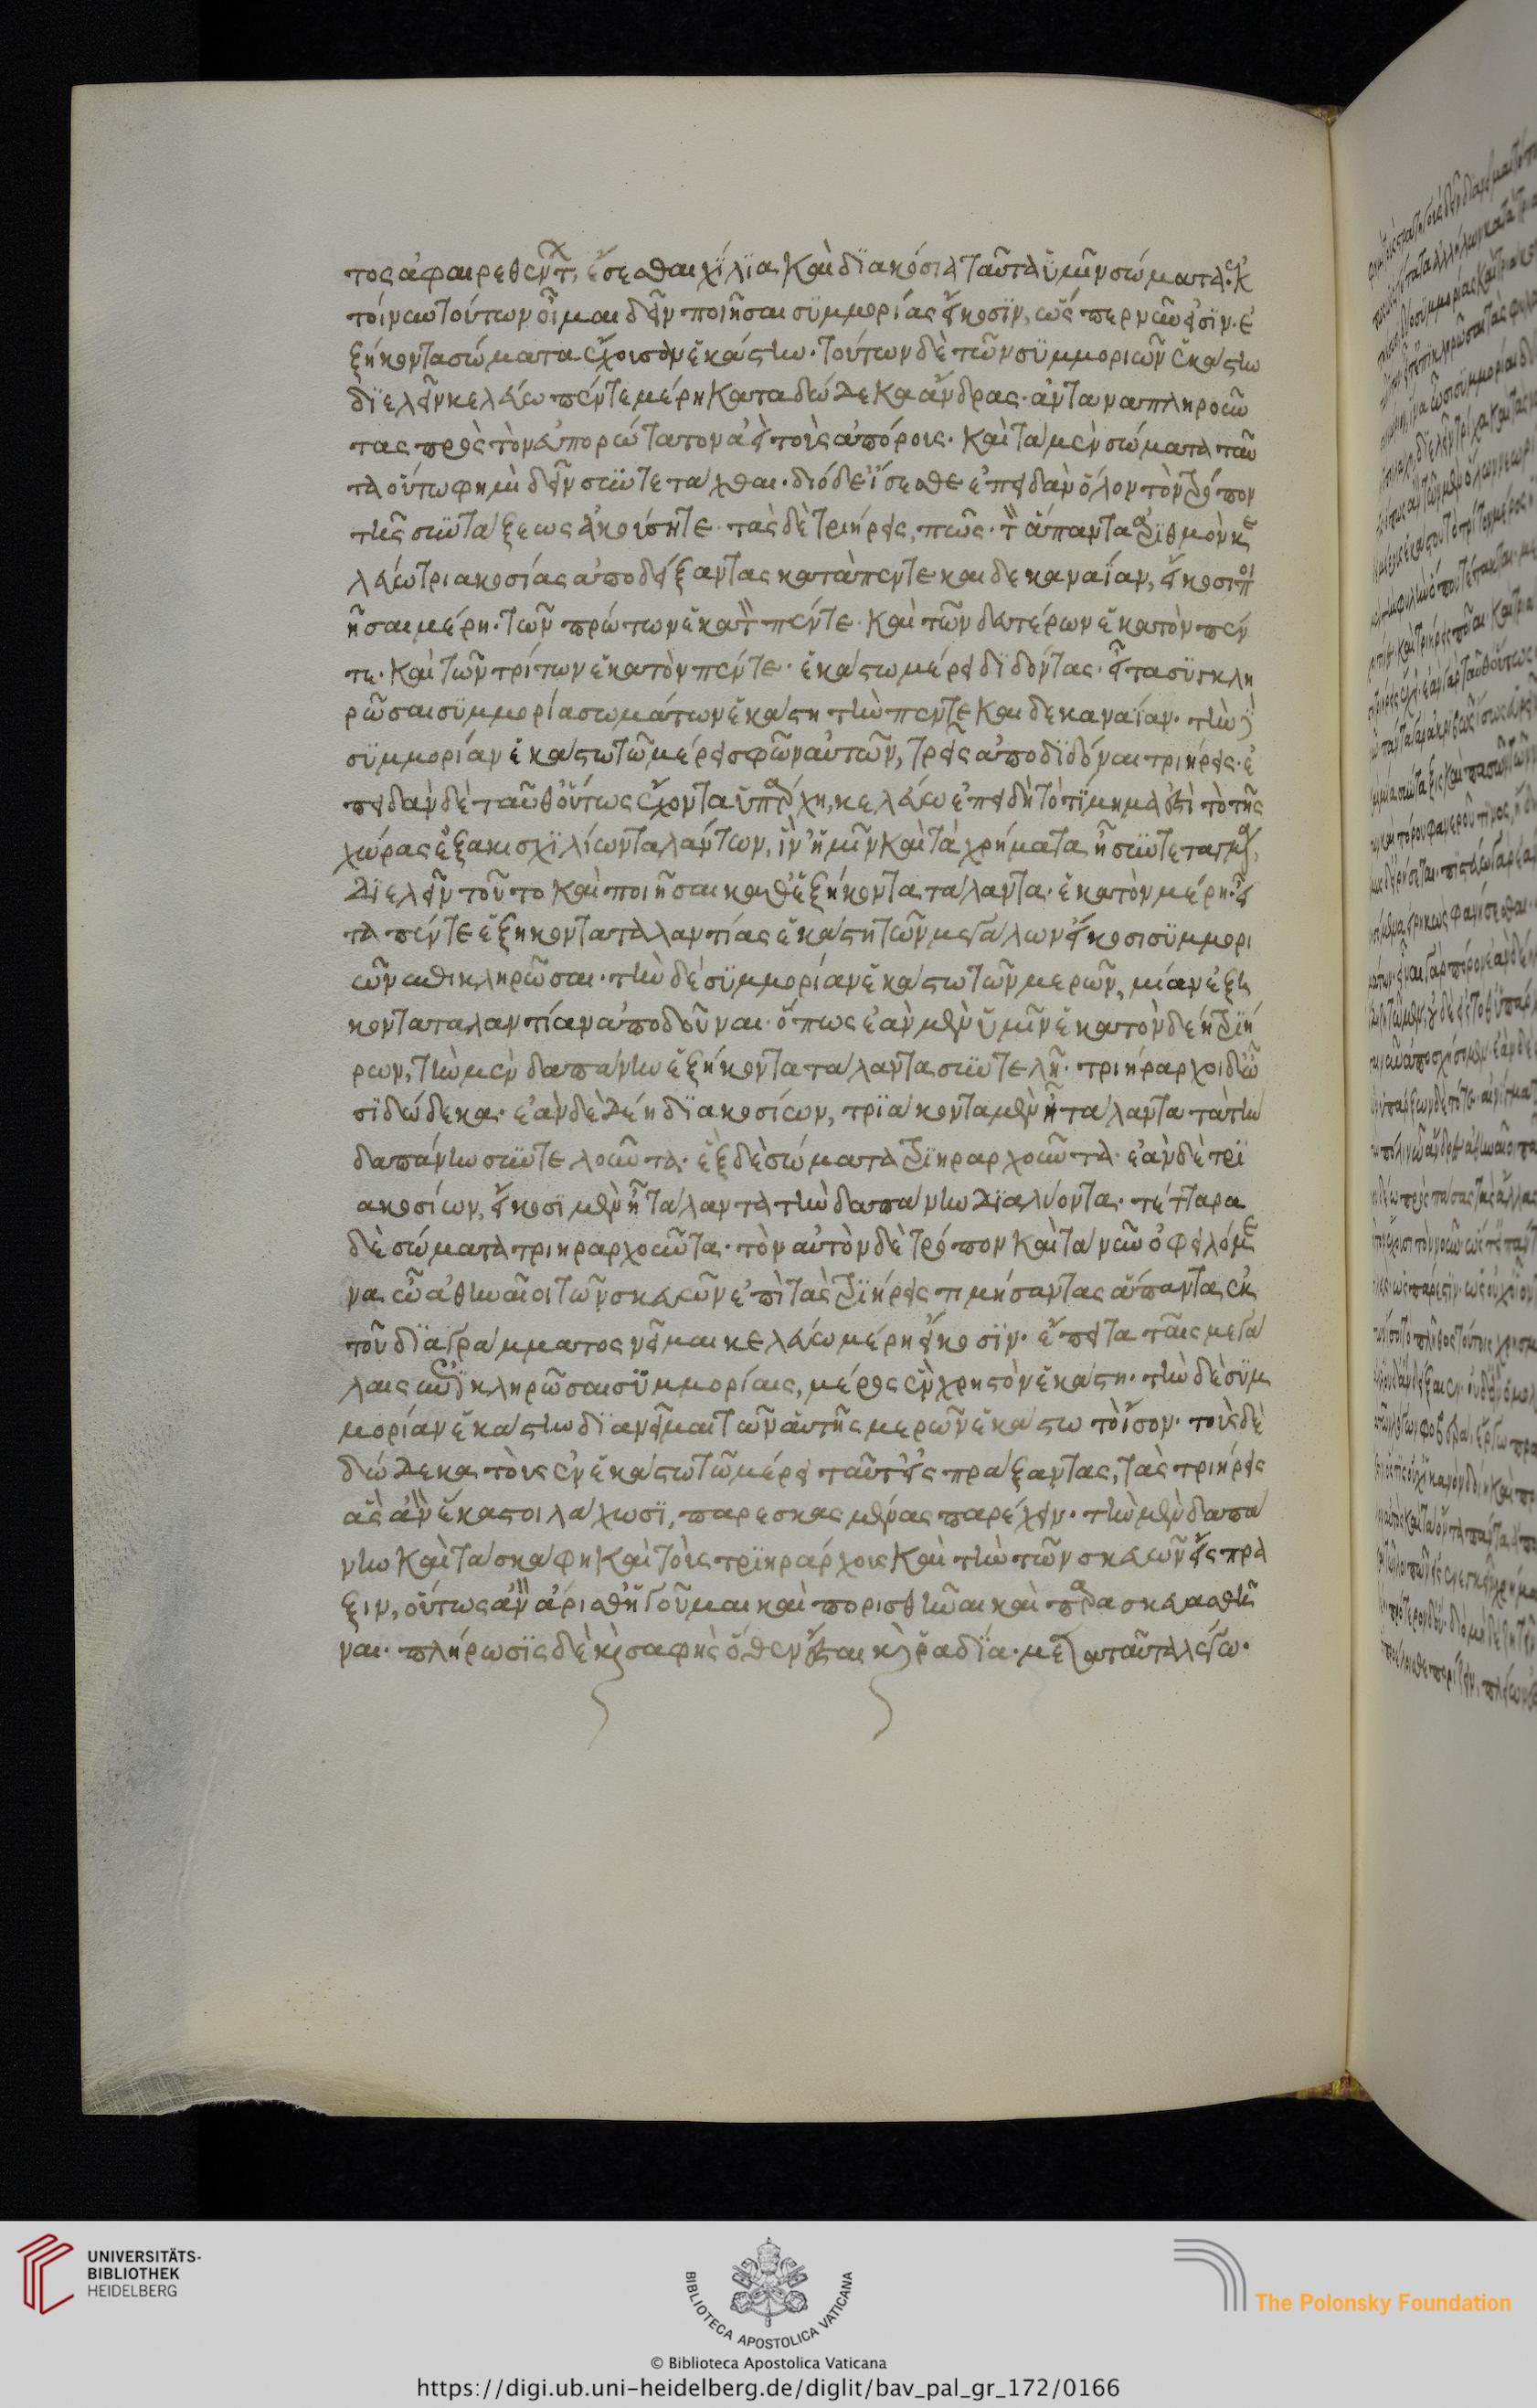 τος ἀφαιρεθέντος, ἔσεσθαι χίλια καὶ διακόσια ταῦτα ὑμῖν σώματα. ἐκ
τοίνυν τούτων οἶμαι δεῖν ποιῆσαι συμμορίας εἴκοσιν, ὥσπερ νῦν εἰσὶν. ἑ
ξήκοντα σώματα ἔχουσαν ἑκάστην. τούτων δὲ τῶν συμμοριῶν ἑκάστην
διελεῖν κελεύω πέντε μέρη κατὰ δώδεκα ἄνδρας. ἀνταναπληροῦν
τας πρὸς τὸν εὐπορώτατον ἀεὶ τοὺς ἀπόρους. καὶ τὰ μὲν σώματα ταῦ
τα οὕτω φημὶ δεῖν συντετάχθαι. διὸ δὲ εἴσεσθε ἐπειδὰν ὅλον τὸν τρόπον
τῆς συντάξεως ἀκούσητε. τὰς δὲ τριήρεις, πῶς. τὸν ἅπαντα ἀριθμὸν κε
λεύω τριακοσίας ἀποδείξαντας κατὰ πεντεκαιδεκαναΐαν, εἴκοσι ποι
ῆσαι μέρη. τῶν πρώτων ἑκατὸν πέντε. καὶ τῶν δευτέρων ἑκατὸν πέν
τε. καὶ τῶν τρίτων ἑκατὸν πέντε. ἑκάστω μέρει διδόντας. εἶτα συγκλη
ρῶσαι συμμορία σωμάτων ἑκάστη τὴν πεντεκαιδεκαναΐαν. τὴν δὲ
συμμορίαν ἑκάστω τῶ μέρει σφῶν αὐτῶν, τρεῖς ἀποδιδόναι τριήρεις. ἐ
πειδὰν δὲ ταῦθ' οὕτως ἔχοντα ὑπάρχη, κελεύω ἐπειδὴ τὸ τίμημα ἐστὶ τὸ τῆς
χώρας ἑξακισχιλίων ταλάντων, ἵν' ἡμῖν καὶ τὰ χρήματα ἦ συντεταγμένα,
διελεῖν τοῦτο καὶ ποιῆσαι καθ' ἑξήκοντα τάλαντα. ἑκατὸν μέρη. εἶ
τα πέντε ἑξηκονταταλαντίας ἑκάστη τῶν μεγάλων εἴκοσι συμμορι
ῶν ἐπικληρῶσαι. τὴν δὲ συμμορίαν ἑκάστω τῶν μερῶν, μίαν ἑξη
κονταταλαντίαν ἀποδοῦναι. ὅπως ἐὰν μὲν ὑμῖν ἑκατὸν δέη τριή
ρων, τὴν μὲν δαπάνην ἑξήκοντα τάλαντα συντελῆ. τριήραρχοι δ' ὦ
σι δώδεκα. ἐὰν δὲ δέη διακοσίων, τριάκοντα μὲν ἦ τάλαντα τὰ τὴν
δαπάνην συντελοῦντα. ἓξ δὲ σώματα τριηραρχοῦντα. ἐὰν δὲ τρι
ακοσίων, εἴκοσι μὲν ἦ τάλαντα τὴν δαπάνην διαλύοντα. τέτταρα
δὲ σώματα τριηραρχοῦντα. τὸν αὐτὸν δὲ τρόπον καὶ τὰ νῦν ὀφειλόμε
να τῶν σκευῶν ἐπὶ τὰς τριήρεις τιμήσαντας ἅπαντα ἐκ
τοῦ διαγράμματος νεῖμαι κελεύω μέρη εἴκοσιν. ἔπειτα ταῖς μεγά
λαις συγκληρῶσαι συμμορίαις, μέρος ἓν χρηστὸν ἑκάστη. τὴν δὲ συμ
μορίαν ἑκάστην διανεῖμαι τῶν αὑτῆς μερῶν ἑκάστω τὸ ἴσον. τοὺς δὲ
δώδεκα τοὺς ἐν ἑκάστω τῶ μέρει ταῦτ' εἰς πράξαντας, τὰς τριήρεις
ἃς ἂν ἕκαστοι λάχωσι, παρεσκευασμένας παρέχειν. τὴν μὲν δαπά
νην καὶ τὰ σκάφη καὶ τοὺς τριηράρχους καὶ τὴν τῶν σκευῶν εἴσπρα
ξιν, οὕτως ἂν ἄρισθ' ἡγοῦμαι καὶ πορισθῆναι καὶ παρασκευασθῆ
ναι. πλήρωσις δὲ καὶ σαφὴς ὅθεν ἔσται καὶ ῥαδία. μετὰ ταῦτα λέγω.
UNIVERSITÄTS-
BIBLIOTHEK
HEIDELBERG
BIBLIOTECA APOSTOLICA VATICANA
The Polonsky Foundation
© Biblioteca Apostolica Vaticana
https://digi.ub.uni-heidelberg.de/diglit/bav_pal_gr_172/0166